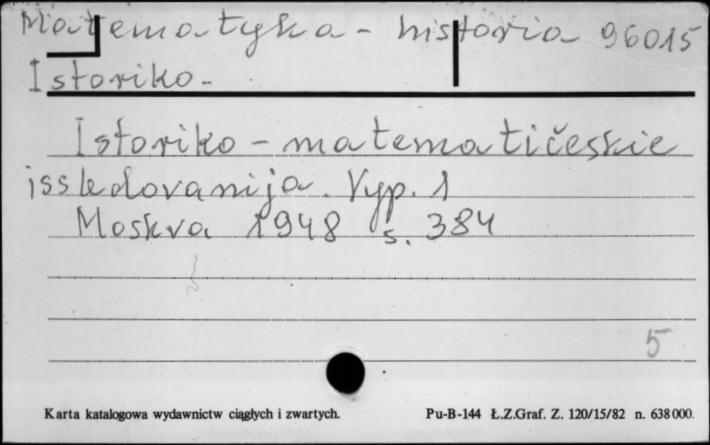 Matematyka - historia 96015
Istoriko-
Istoriko - matematičeskie
issledovanija. Vyp. 1
Moskva 1948 s. 384
5
Karta katalogowa wydawnictw ciągłych i zwartych. Pu-B-144 Ł.Z.Graf. Z. 120/15/82 n. 638000.